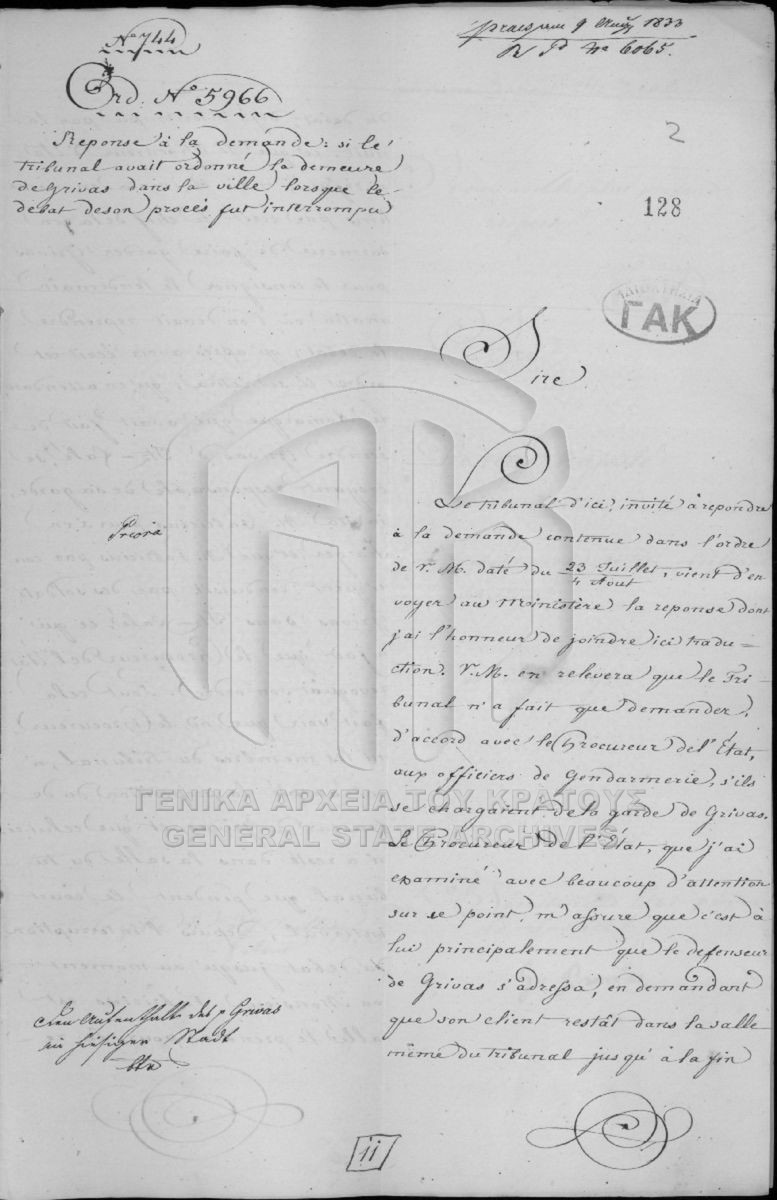 N° 744
praes. am 9 Aug 1833
R N° 6065.
Ord. N° 5966
2
Reponse à la demande: si le
tribunal avait ordonné la demeure
de Grivas dans la ville lorsque le
debat de son procès fut interrompu
128
ΓΑΚ
Sire
Le tribunal d'ici, invité à repondre
à la demande contenue dans l'ordre
Priora
de V. M. daté du 23 Juillet / 4 Aout, vient d'en
voyer au Ministère la reponse dont
j'ai l'honneur de joindre ici tradu=
ction. V. M. en relevera que le Tri-
bunal n'a fait que demander,
d'accord avec le Procureur de l'État,
aux officiers de Gendarmerie, s'ils
se chargaient de la garde de Grivas.
ΓΕΝΙΚΑ ΑΡΧΕΙΑ ΤΟΥ ΚΡΑΤΟΥΣ
GENERAL STATE ARCHIVES
Le Procureur de l'État, que j'ai
examiné avec beaucoup d'attention
sur ce point, m'assure que c'est à
lui principalement que le defenseur
de Grivas s'adressa, en demandant
que son client restât dans la salle
même du tribunal jusqu'à la fin
den Aufenthalt des p Grivas
in hiesiger Stadt
btr
11